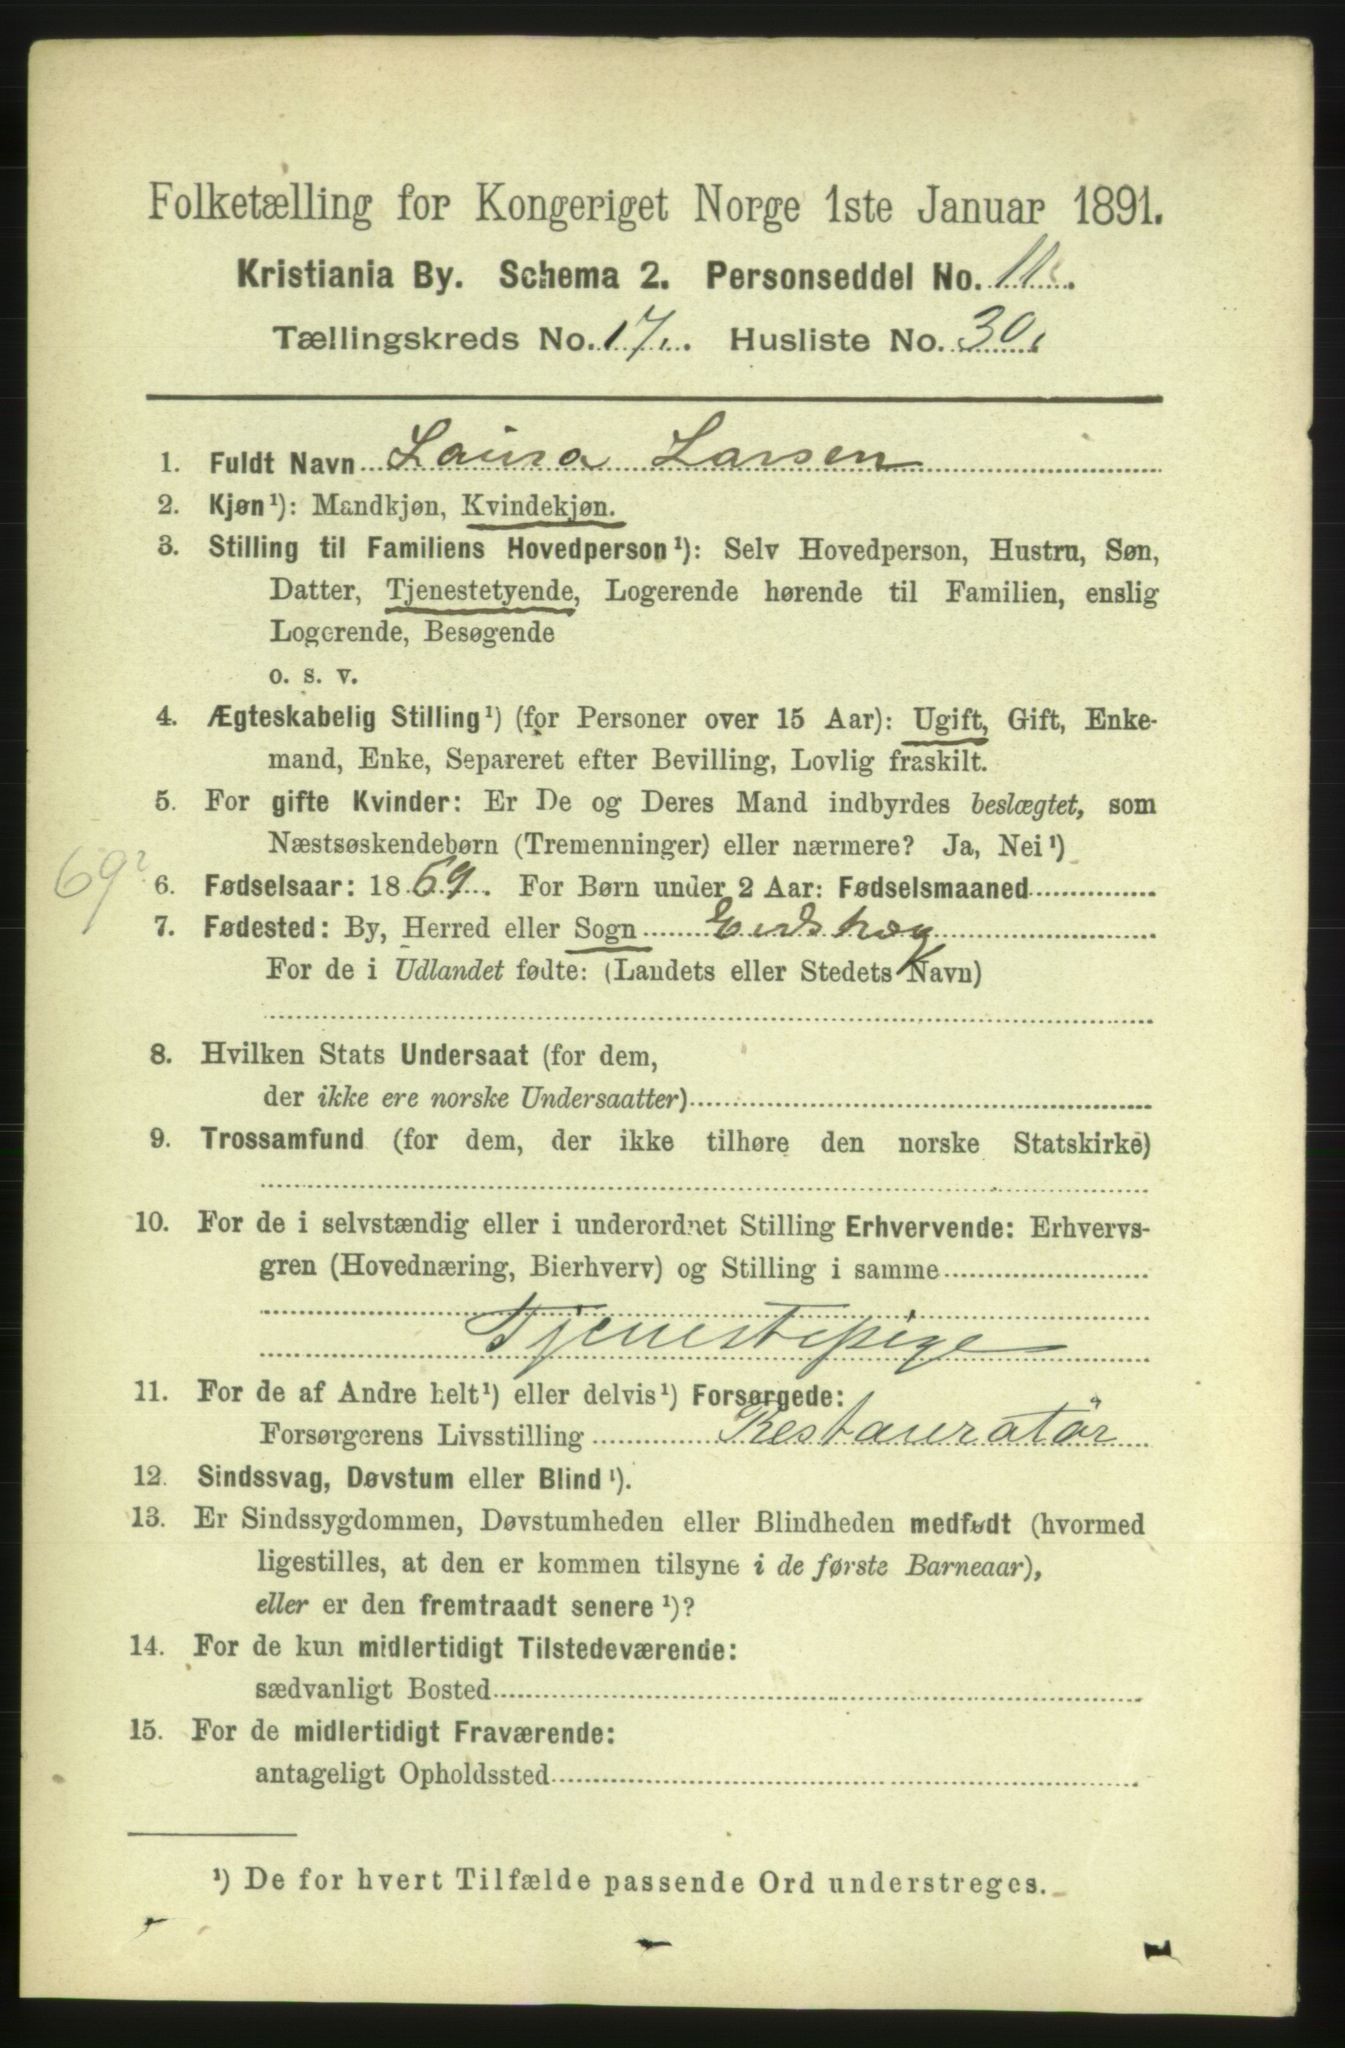 Folketælling for Kongeriget Norge 1ste Januar 1891.
Kristiania By. Schema 2. Personseddel No. 11.
Tællingskreds No. 17. Husliste No. 30.
1. Fuldt Navn Laura Larsen
2. Kjøn¹): Mandkjøn, Kvindekjøn.
3. Stilling til Familiens Hovedperson¹): Selv Hovedperson, Hustru, Søn,
Datter, Tjenestetyende, Logerende hørende til Familien, enslig
Logerende, Besøgende
o. s. v.
4. Ægteskabelig Stilling¹) (for Personer over 15 Aar): Ugift, Gift, Enke-
mand, Enke, Separeret efter Bevilling, Lovlig fraskilt.
5. For gifte Kvinder: Er De og Deres Mand indbyrdes beslægtet, som
Næstsøskendebørn (Tremenninger) eller nærmere? Ja, Nei¹)
69?
6. Fødselsaar: 1869. For Børn under 2 Aar: Fødselsmaaned
7. Fødested: By, Herred eller Sogn Eidskog
For de i Udlandet fødte: (Landets eller Stedets Navn)
8. Hvilken Stats Undersaat (for dem,
der ikke ere norske Undersaatter)
9. Trossamfund (for dem, der ikke tilhøre den norske Statskirke)
10. For de i selvstændig eller i underordnet Stilling Erhvervende: Erhvervs-
gren (Hovednæring, Bierhverv) og Stilling i samme
Tjenestepige
11. For de af Andre helt¹) eller delvis¹) Forsørgede:
Forsørgerens Livsstilling Restauratør
12. Sindssvag, Døvstum eller Blind¹).
13. Er Sindssygdommen, Døvstumheden eller Blindheden medfødt (hvormed
ligestilles, at den er kommen tilsyne i de første Barneaar),
eller er den fremtraadt senere¹)?
14. For de kun midlertidigt Tilstedeværende:
sædvanligt Bosted
15. For de midlertidigt Fraværende:
antageligt Opholdssted
¹) De for hvert Tilfælde passende Ord understreges.